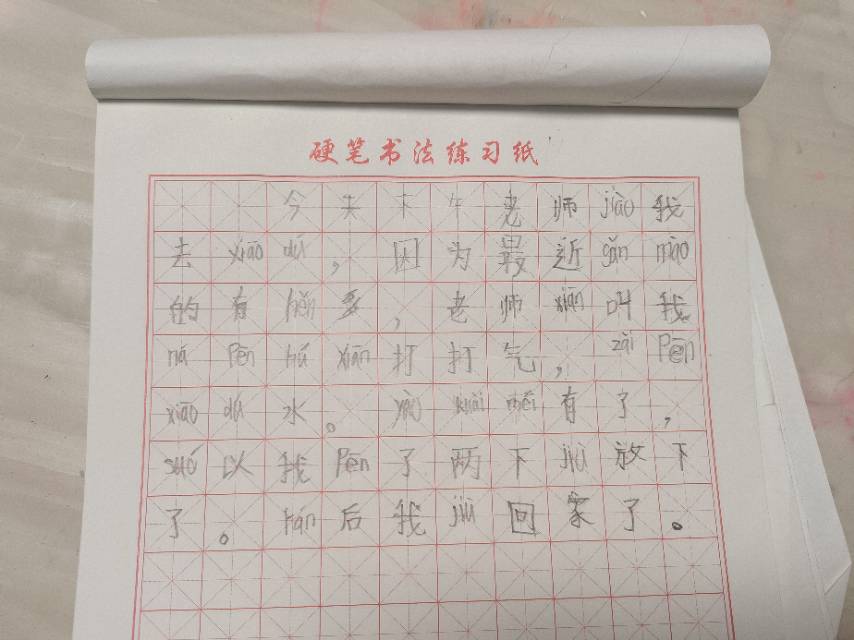 硬笔书法练习纸
今天下午老师jiào我
去xiāo dú，因为最近gǎn mào
的有hěn多，老师xiān叫我
ná Pēn hú xiān打打气，zài Pēn
xiāo dú水。yào kuài méi有了，
suǒ以我Pēn了两下jiù放下
了。rán后我jiù回家了。